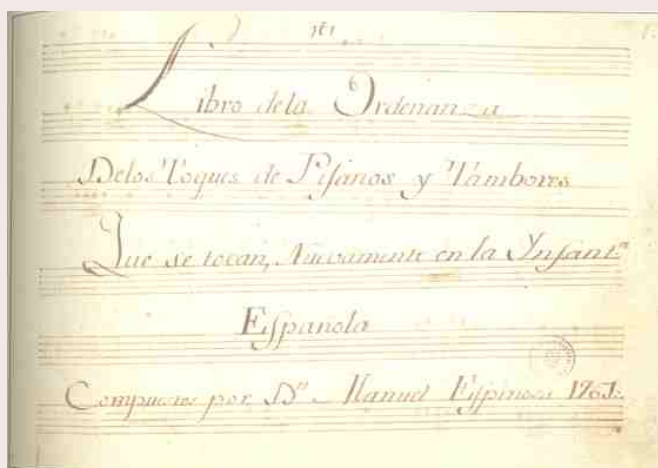 Libro de la Ordenanza
Delos Toques de Pifanos y Tambores
Que se tocan, Nuevamente en la Ynfant.ª
Española
Compuestos por D.ⁿ Manuel Espinosa 1761.